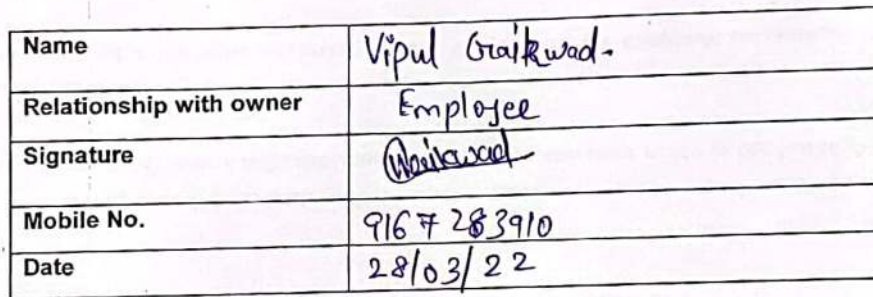 Name Vipul Gaikwad.
Relationship with owner Employee
Signature Gaikwad
Mobile No. 9167283910
Date 28/03/22